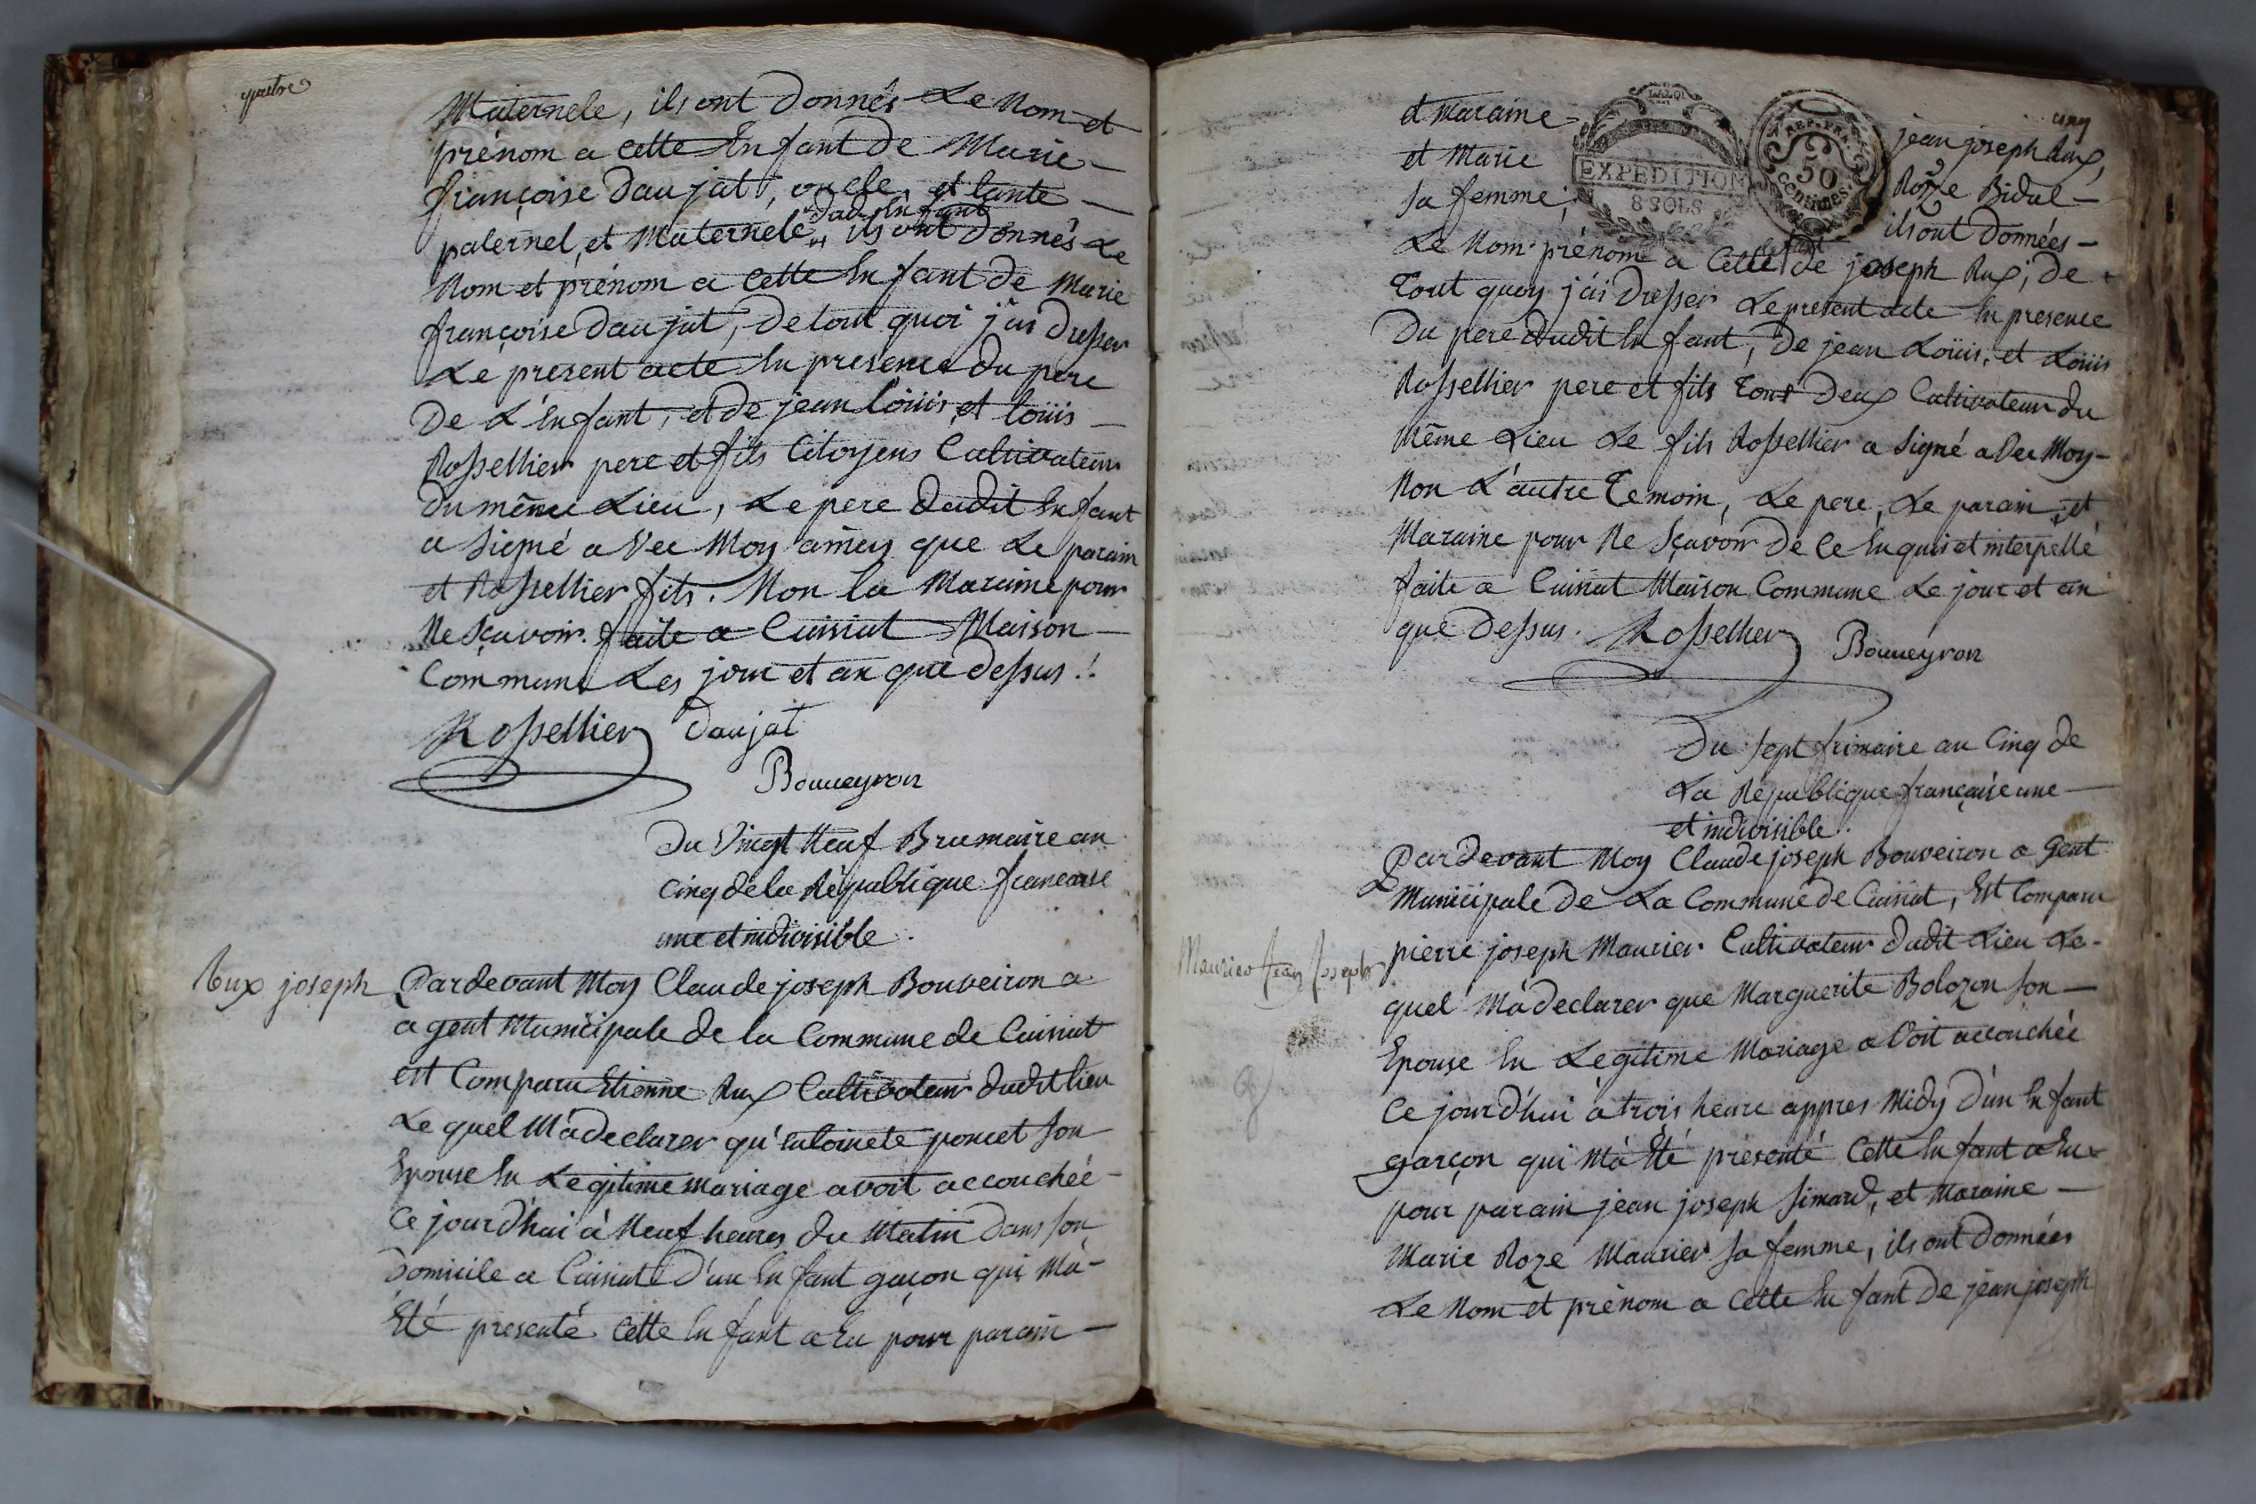 quatre
Maternele, ils ont donnés Le Nom et
prénom a cette Enfant De Marie
françoise Daujat, oncle, et tante
dudit Enfant
paternel, et Maternele, ils ont donnés Le
Nom et prénom a cette Enfant de Marie
françoise Daujat, De tout quoi j'ai Dresser
Le present acte En presence du pere
De L'Enfant, et de jean Loüis, et loüis
Rossellier pere et fils Citoyens Cultivateur
du même Lieu, Le pere dudit Enfant
a Signé aVec Moy ainsy que Le parain
et Rossellier fils. Non la Maraine pour
Ne Sçavoir. faite a Cuisiat Maison
Commune Les jour et an que Dessus !.
Rossellier Daujat
Bouveyron
Du Vingt Neuf Brumaire an
Cinq de la République francaise
une et indivisible.
Rux joseph
Pardevant Moy Claude joseph Bouveiron a
agent Municipale de la Commune de Cuisiat
est Comparu Etienne Rux Cultivateur dudit lieu
Le quel M'à declarer qu'entoinete poncet Son
Epouse En Legitime Mariage avoit accouchée
Ce jourd'hui à Neuf heures du Matin dans son
Domicile a Cuisiat D'un Enfant garçon qui M'à
Eté presenté Cette Enfant a Eu pour parain
cinq
LALOI
EXPEDITION
8 SOLS
REP. FRA.
50
Centimes.
jean joseph Rux,
et Maraine
et Marie Roze Bidal
sa femme, ils ont données
Enfant
Le Nom prénom a Cette De joseph Rux, De
Tout quoy j'ai Dresser Le present acte En presence
Du pere dudit Enfant, De jean Loüis, et Loüis
Rossellier pere et fils Tous Deux Cultivateur du
Même Lieu Le fils Rossellier a Signé aVec Moy
Non L'autre Temoin, Le pere, Le parain, et
Maraine pour Ne Sçavoir De Ce Enquis et interpellé
faite a Cuisiat Maison Commune Le jour et an
que Dessus. Rossellier Bouveyron
Du Sept frimaire an Cinq de
La République française une
et indivisible.
Pardevant Moy Claude joseph Bouveiron a Gent
Municipale de La Commune de Cuisiat, Est Comparu
Maurier Jean Joseph
pierre joseph Maurier Cultivateur dudit Lieu Le
quel M'à declarer que Marguerite Bolozon son
Epouse En Legitime Mariage aVoit accouchée
Ce jourd'hui à trois heure appres Midy D'un Enfant
garçon qui M'à Eté présenté Cette Enfant a Eu
pour parain jean joseph Simard, et Maraine
Marie Roze Maurier sa femme, ils ont données
Le Nom et prénom a Cette Enfant de jean joseph